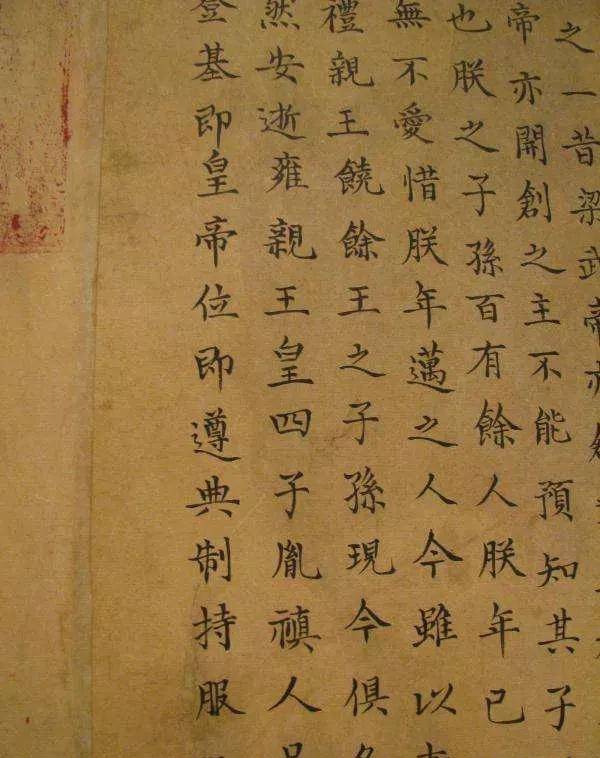 之一昔梁武帝亦
帝亦開創之主不能預知其子
也朕之子孫百有餘人朕年已
無不愛惜朕年邁之人今雖以
禮親王饒餘王之子孫現今俱
然安逝雍親王皇四子胤禛人品
登基即皇帝位即遵典制持服